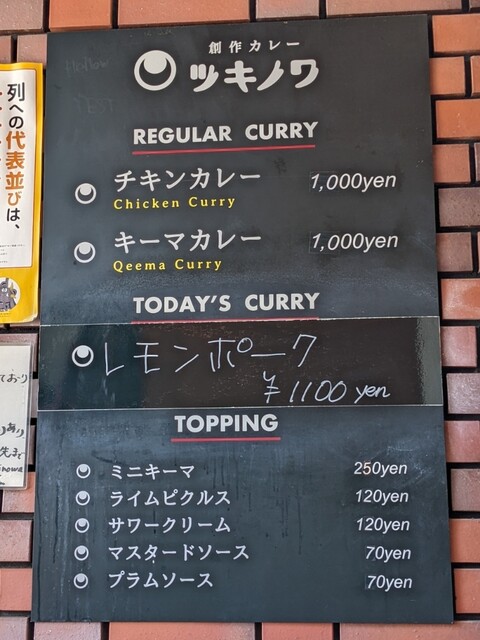 創作カレー
ツキノワ
REGULAR CURRY
チキンカレー 1,000yen
Chicken Curry
キーマカレー 1,000yen
Qeema Curry
TODAY'S CURRY
レモンポーク
¥1100 yen
TOPPING
ミニキーマ 250yen
ライムピクルス 120yen
サワークリーム 120yen
マスタードソース 70yen
プラムソース 70yen
列への代表並びは、
ており
あり
先まで